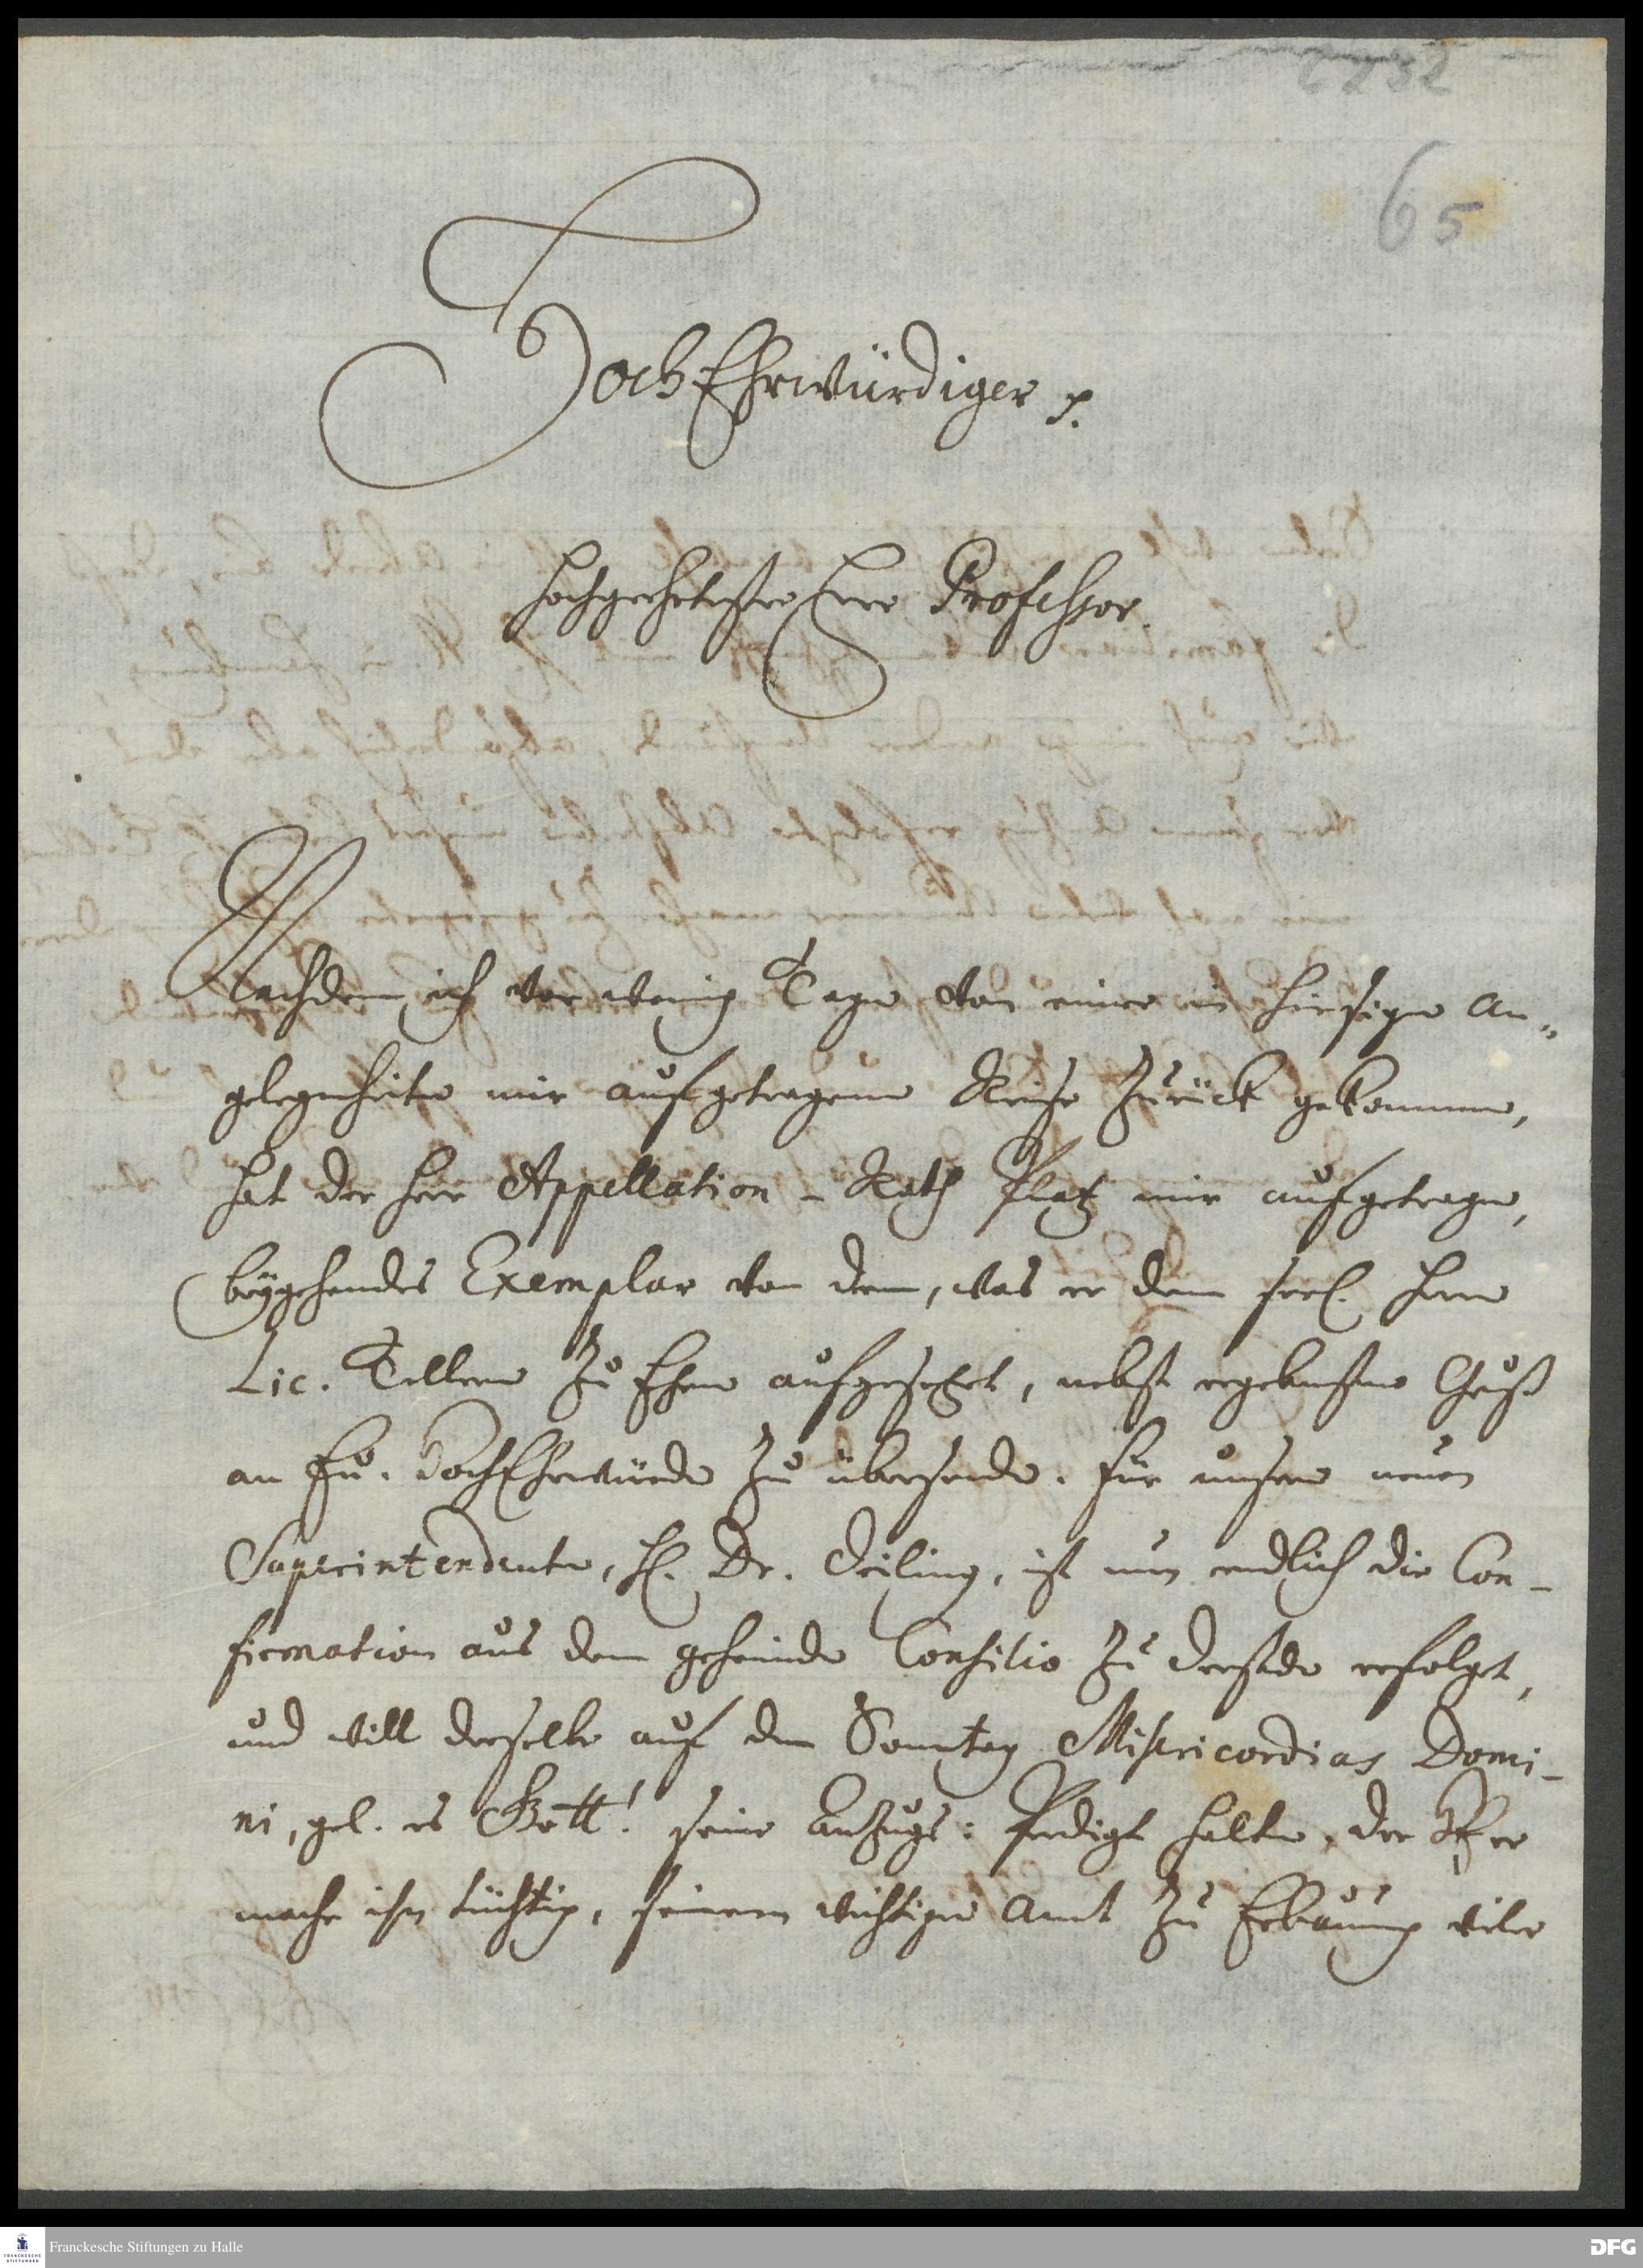 65
HochEhrwürdiger p.
Hochgeehrtester Herr Professor.
Nachdem ich vor wenig Tagen von einer in hiesigen An-
gelegenheiten mir aufgetragenen Reise zurück gekommen,
hat der Herr Appellation-Rath Platz mir aufgetragen,
beygehendes Exemplar von dem, was er dem seel. Herrn
Lic. Tellern zu Ehren aufgesetzt, nebst ergebensten Gruß
an Eu. HochEhrwürden zu übersenden. Für unsern neuen
Superintendenten, H. Dr. Deiling, ist nun endlich die Con-
firmation aus dem geheimden Consilio zu Dreßden erfolget,
und will derselbe auf den Sonntag Misericordias Domi-
ni, gel. es Gott! seine Anzugs-Predigt halten, der HErr
mache ihn tüchtig, seinem wichtigen Amt zu Erbauung vieler
Franckesche Stiftungen zu Halle
DFG